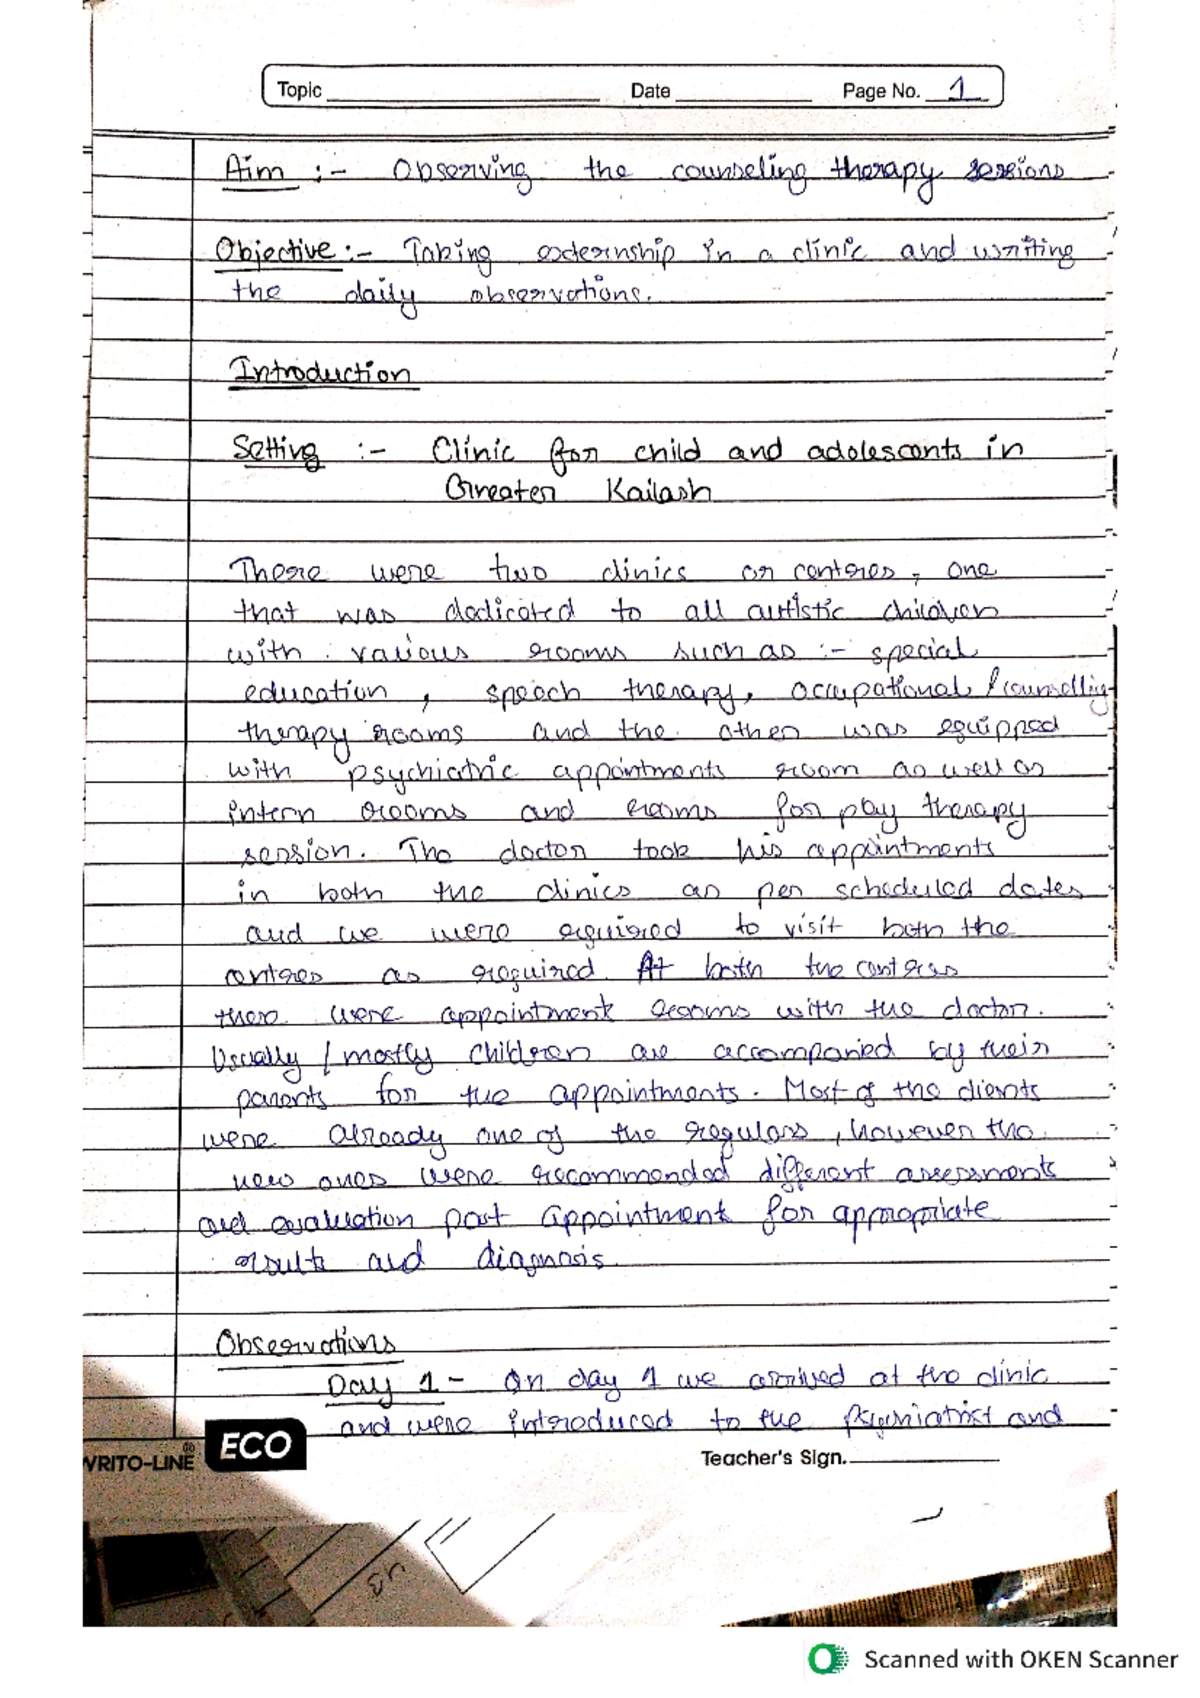 Topic Date Page No. 1
Aim :- Observing the counseling therapy sessions
Objective :- Taking externship in a clinic and writing
the daily observations.
Introduction
Setting :- Clinic for child and adolescents in
Greater Kailash
There were two clinics or centres, one
that was dedicated to all autistic children
with various rooms such as :- special
education, speech therapy, occupational / counselling
therapy rooms and the other was equipped
with psychiatric appointments room as well as
intern rooms and rooms for play therapy
session. The doctor took his appointments
in both the clinics as per scheduled dates
and we were required to visit both the
centres as required. At both the centres
there were appointment rooms with the doctor.
Usually / mostly children are accompanied by their
parents for the appointments. Most of the clients
were already one of the regulars, however the
new ones were recommended different assessments
and evaluation post appointment for appropriate
results and diagnosis.
Observations
Day 1 - On day 1 we arrived at the clinic
and were introduced to the Psychiatrist and
WRITO-LINE ® ECO Teacher's Sign.
Scanned with OKEN Scanner